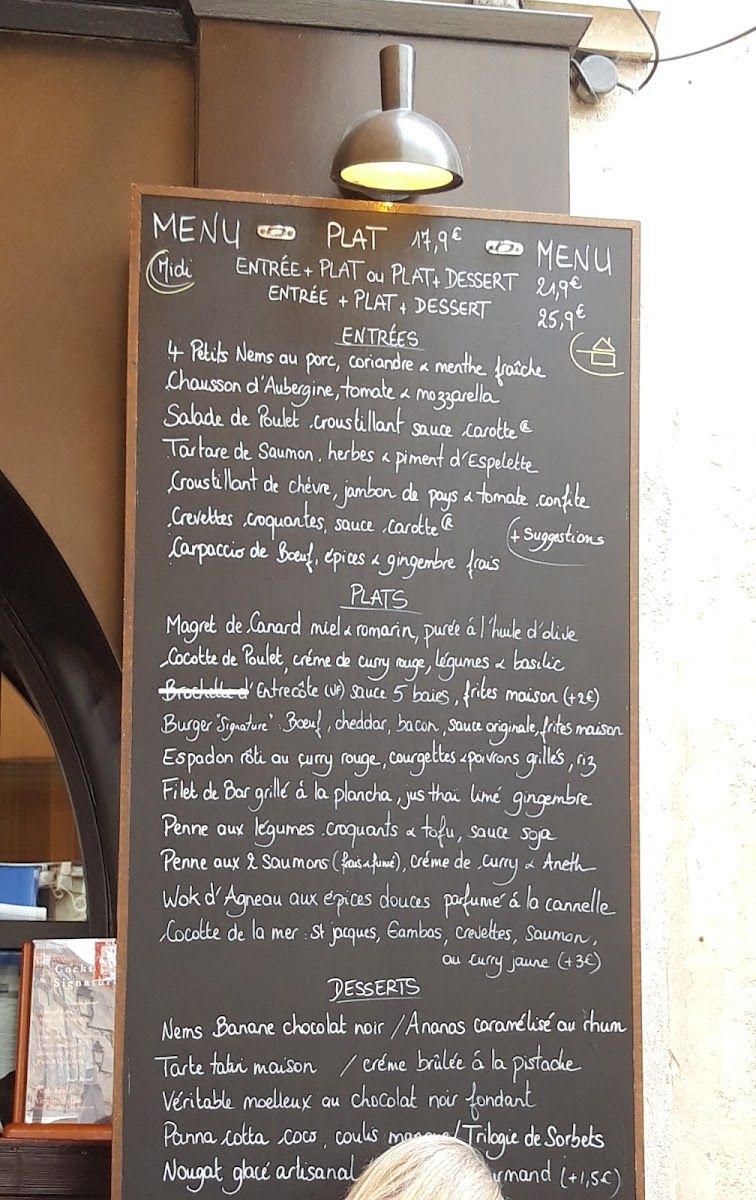 MENU PLAT 17,9€ MENU
Midi
ENTRÉE + PLAT ou PLAT + DESSERT 21,9€
ENTRÉE + PLAT + DESSERT 25,9€
ENTRÉES
4 Petits Nems au porc, coriandre & menthe fraîche
Chausson d'Aubergine, tomate & mozzarella
Salade de Poulet croustillant sauce carotte
Tartare de Saumon, herbes & piment d'Espelette
Croustillant de chèvre, jambon de pays & tomate confite
Crevettes croquantes, sauce carotte
+ Suggestions
Carpaccio de Bœuf, épices & gingembre frais
PLATS
Magret de Canard miel & romarin, purée à l'huile d'olive
Cocotte de Poulet, crème de curry rouge, légumes & basilic
Brochette d'Entrecôte (VF) sauce 5 baies, frites maison (+2€)
Burger "Signature" : Bœuf, cheddar, bacon, sauce originale, frites maison
Espadon rôti au curry rouge, courgettes & poivrons grillés, riz
Filet de Bar grillé à la plancha, jus thaï limé gingembre
Penne aux légumes croquants & tofu, sauce soja
Penne aux 2 Saumons (frais & fumé), crème de curry & Aneth
Wok d'Agneau aux épices douces parfumé à la cannelle
Cocotte de la mer : St jacques, Gambas, crevettes, Saumon,
au curry jaune (+3€)
DESSERTS
Nems Banane chocolat noir / Ananas caramélisé au rhum
Tarte tatin maison / crème brûlée à la pistache
Véritable moelleux au chocolat noir fondant
Panna cotta coco, coulis / Trilogie de Sorbets
Nougat glacé artisanal (+1,5€)